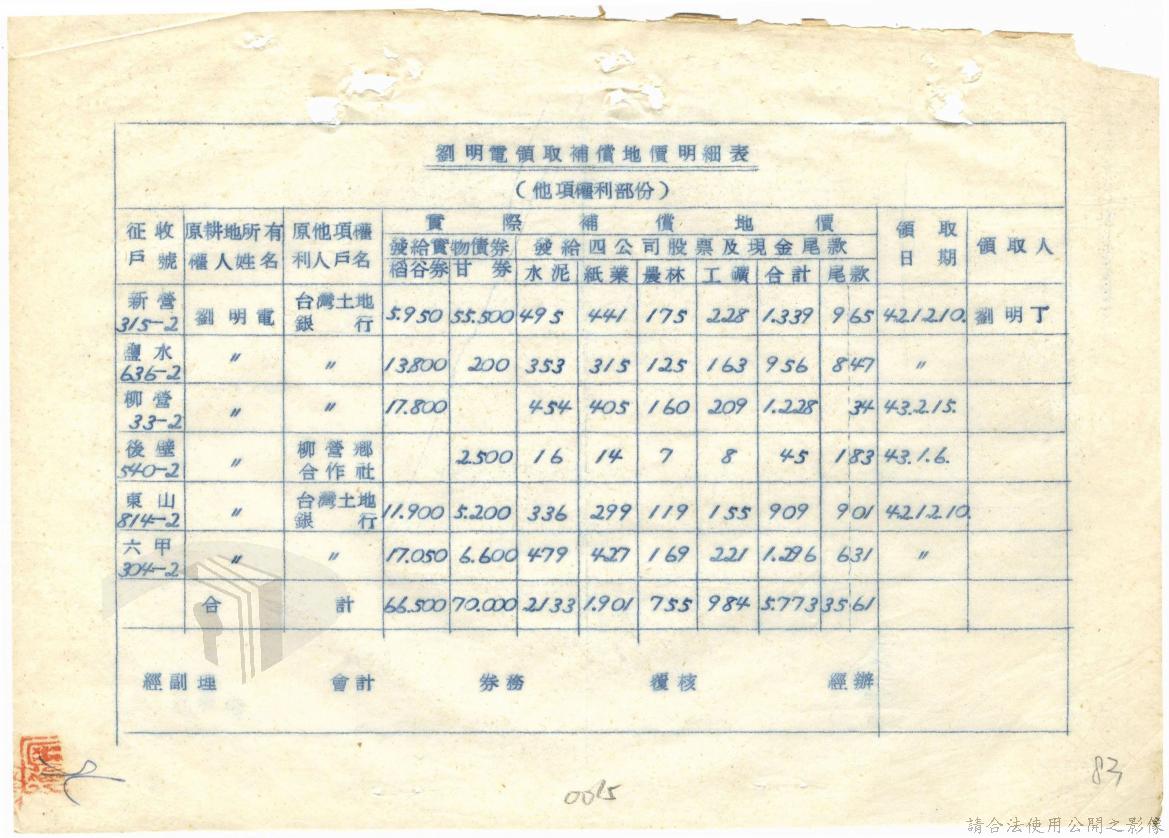 劉明電領取補償地價明細表
(他項權利部份)
征收戶號 原耕地所有權人姓名 原他項權利人戶名 實際補償地價 領取日期 領取人
發給實物債券 發給四公司股票及現金尾款
稻谷券 甘券 水泥 紙業 農林 工礦 合計 尾款
新營315-2 劉明電 台灣土地銀行 5.950 55.500 495 441 175 228 1.339 965 42.12.10. 劉明丁
鹽水636-2 〃 〃 13.800 200 353 315 125 163 956 847 〃
柳營33-2 〃 〃 17.800 454 405 160 209 1.228 34 43.2.15.
後壁540-2 〃 柳營鄉合作社 2.500 16 14 7 8 45 183 43.1.6.
東山814-2 〃 台灣土地銀行 11.900 5.200 336 299 119 155 909 901 42.12.10.
六甲304-2 〃 〃 17.050 6.600 479 427 169 221 1.296 631 〃
合計 66.500 70.000 2133 1.901 755 984 5.773 3561
經副理 會計 券務 覆核 經辦
0015
83
請合法使用公開之影像